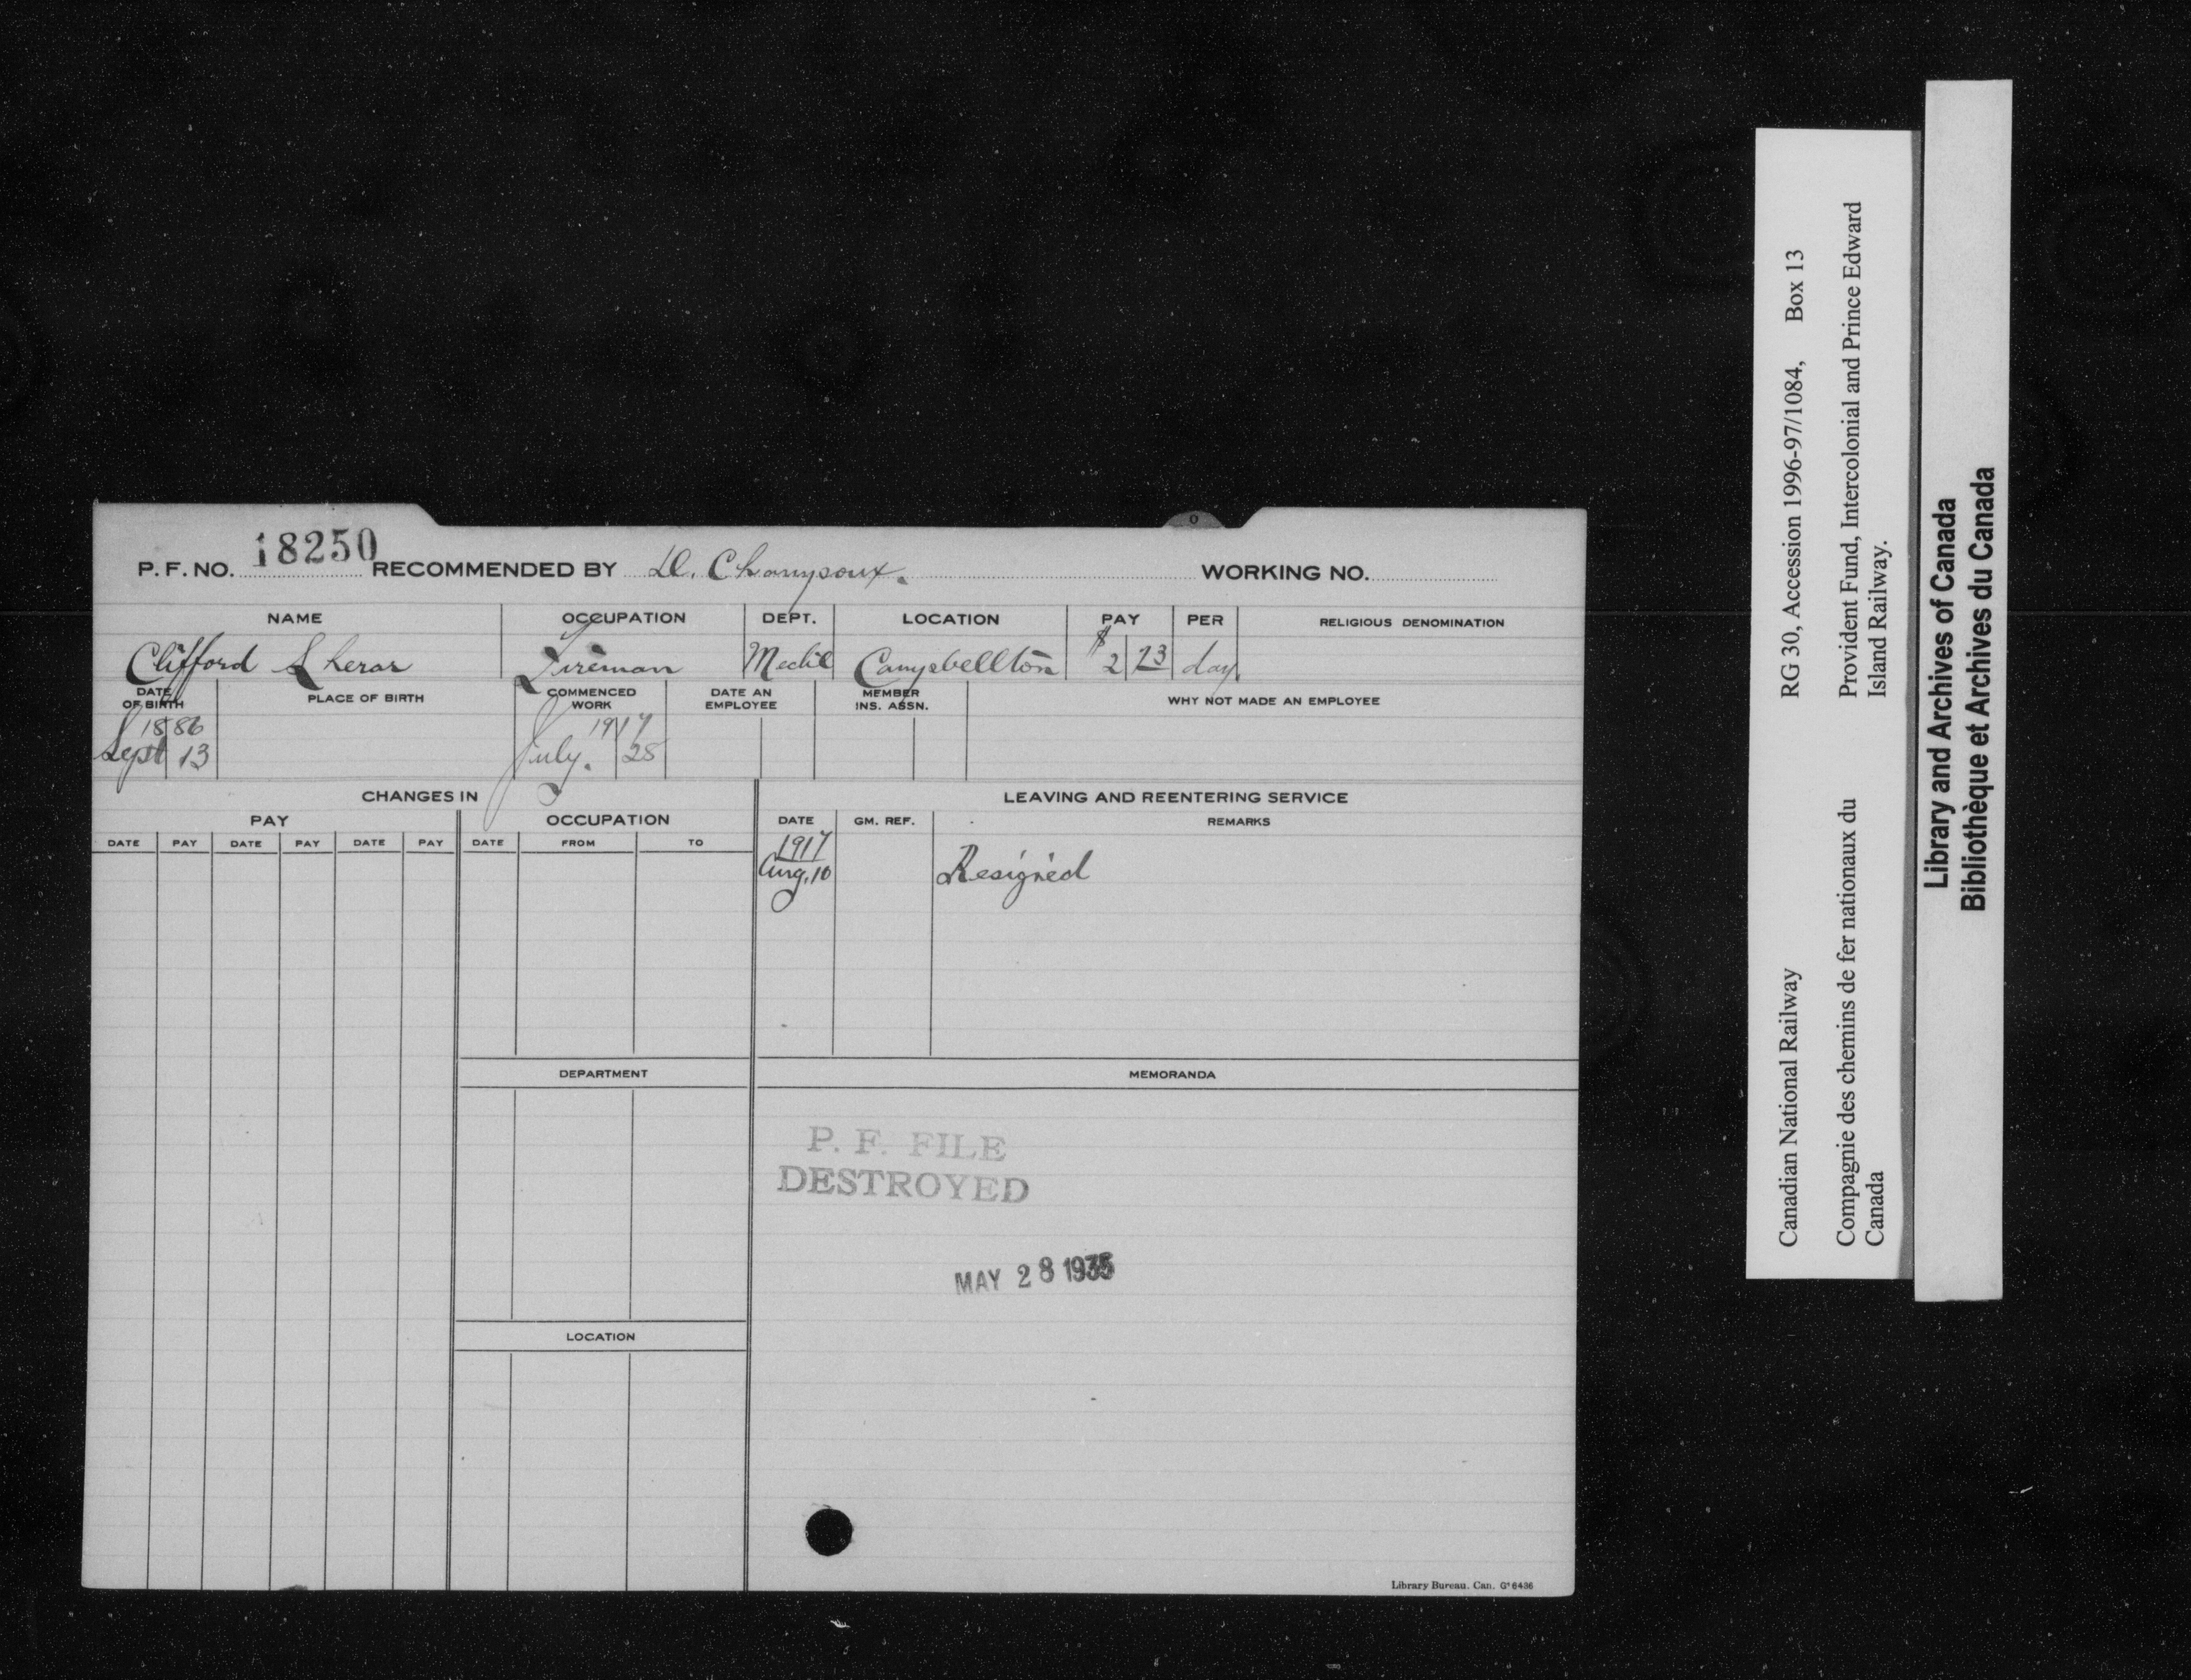 P. F. NO. 18250 RECOMMENDED BY D. Champoux. WORKING NO.
NAME OCCUPATION DEPT. LOCATION PAY PER RELIGIOUS DENOMINATION
Clifford Sherar Fireman Mechl Campbellton $2 23 day.
DATE OF BIRTH PLACE OF BIRTH COMMENCED WORK DATE AN EMPLOYEE MEMBER INS. ASSN. WHY NOT MADE AN EMPLOYEE
1886 1917
Sept 13 July. 25
CHANGES IN LEAVING AND REENTERING SERVICE
PAY OCCUPATION DATE GM. REF. REMARKS
DATE PAY DATE PAY DATE PAY DATE FROM TO
1917
Aug. 10 Resigned
DEPARTMENT MEMORANDA
P. F. FILE
DESTROYED
MAY 28 1935
LOCATION
Library Bureau. Can. G 6436
Canadian National Railway RG 30, Accession 1996-97/1084, Box 13
Compagnie des chemins de fer nationaux du Provident Fund, Intercolonial and Prince Edward
Canada Island Railway.
Library and Archives of Canada
Bibliothèque et Archives du Canada